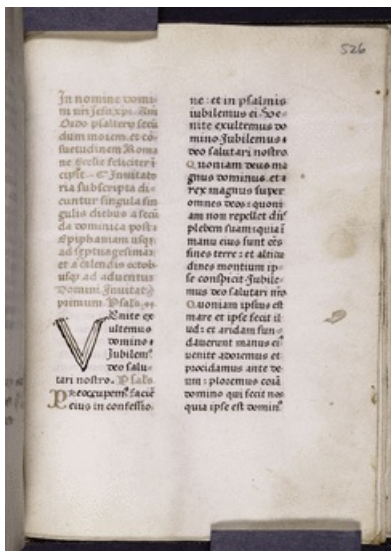 526
In nomine domi-
ni nri Jesu xpi. Am
Ordo psalterij secu
dum morem et co
suetudinem Roma
ne Ecclie feliciter i
cipit. Inuitato
ria subscripta di
cuntur singula sin
gulis diebus a secu
da dominica post
Epiphaniam usqz
ad septuagesimaz
et a calendis octob
usqz ad aduentus
Domini Inuitat
primum Psalz
Venite ex
ultemus
domino
Jubilem9
deo salu
tari nostro. Psalz
Preoccupem9 facie
eius in confessio
ne: et in psalmis
iubilemus ei. Ve
nite exultemus do
mino Jubilemus
deo salutari nostro
Quoniam deus ma
gnus dominus. et
rex magnus super
omnes deos: quoni
am non repellet dns
plebem suam: quia i
manu eius sunt oes
fines terre: et altitu
dines montium ip
se conspicit. Jubile
mus deo salutari nro
Quoniam ipsius est
mare et ipse fecit il
lud: et aridam fun
dauerunt manus ei
uenite adoremus et
procidamus ante de
um: ploremus cora
domino qui fecit nos
quia ipse est domin9